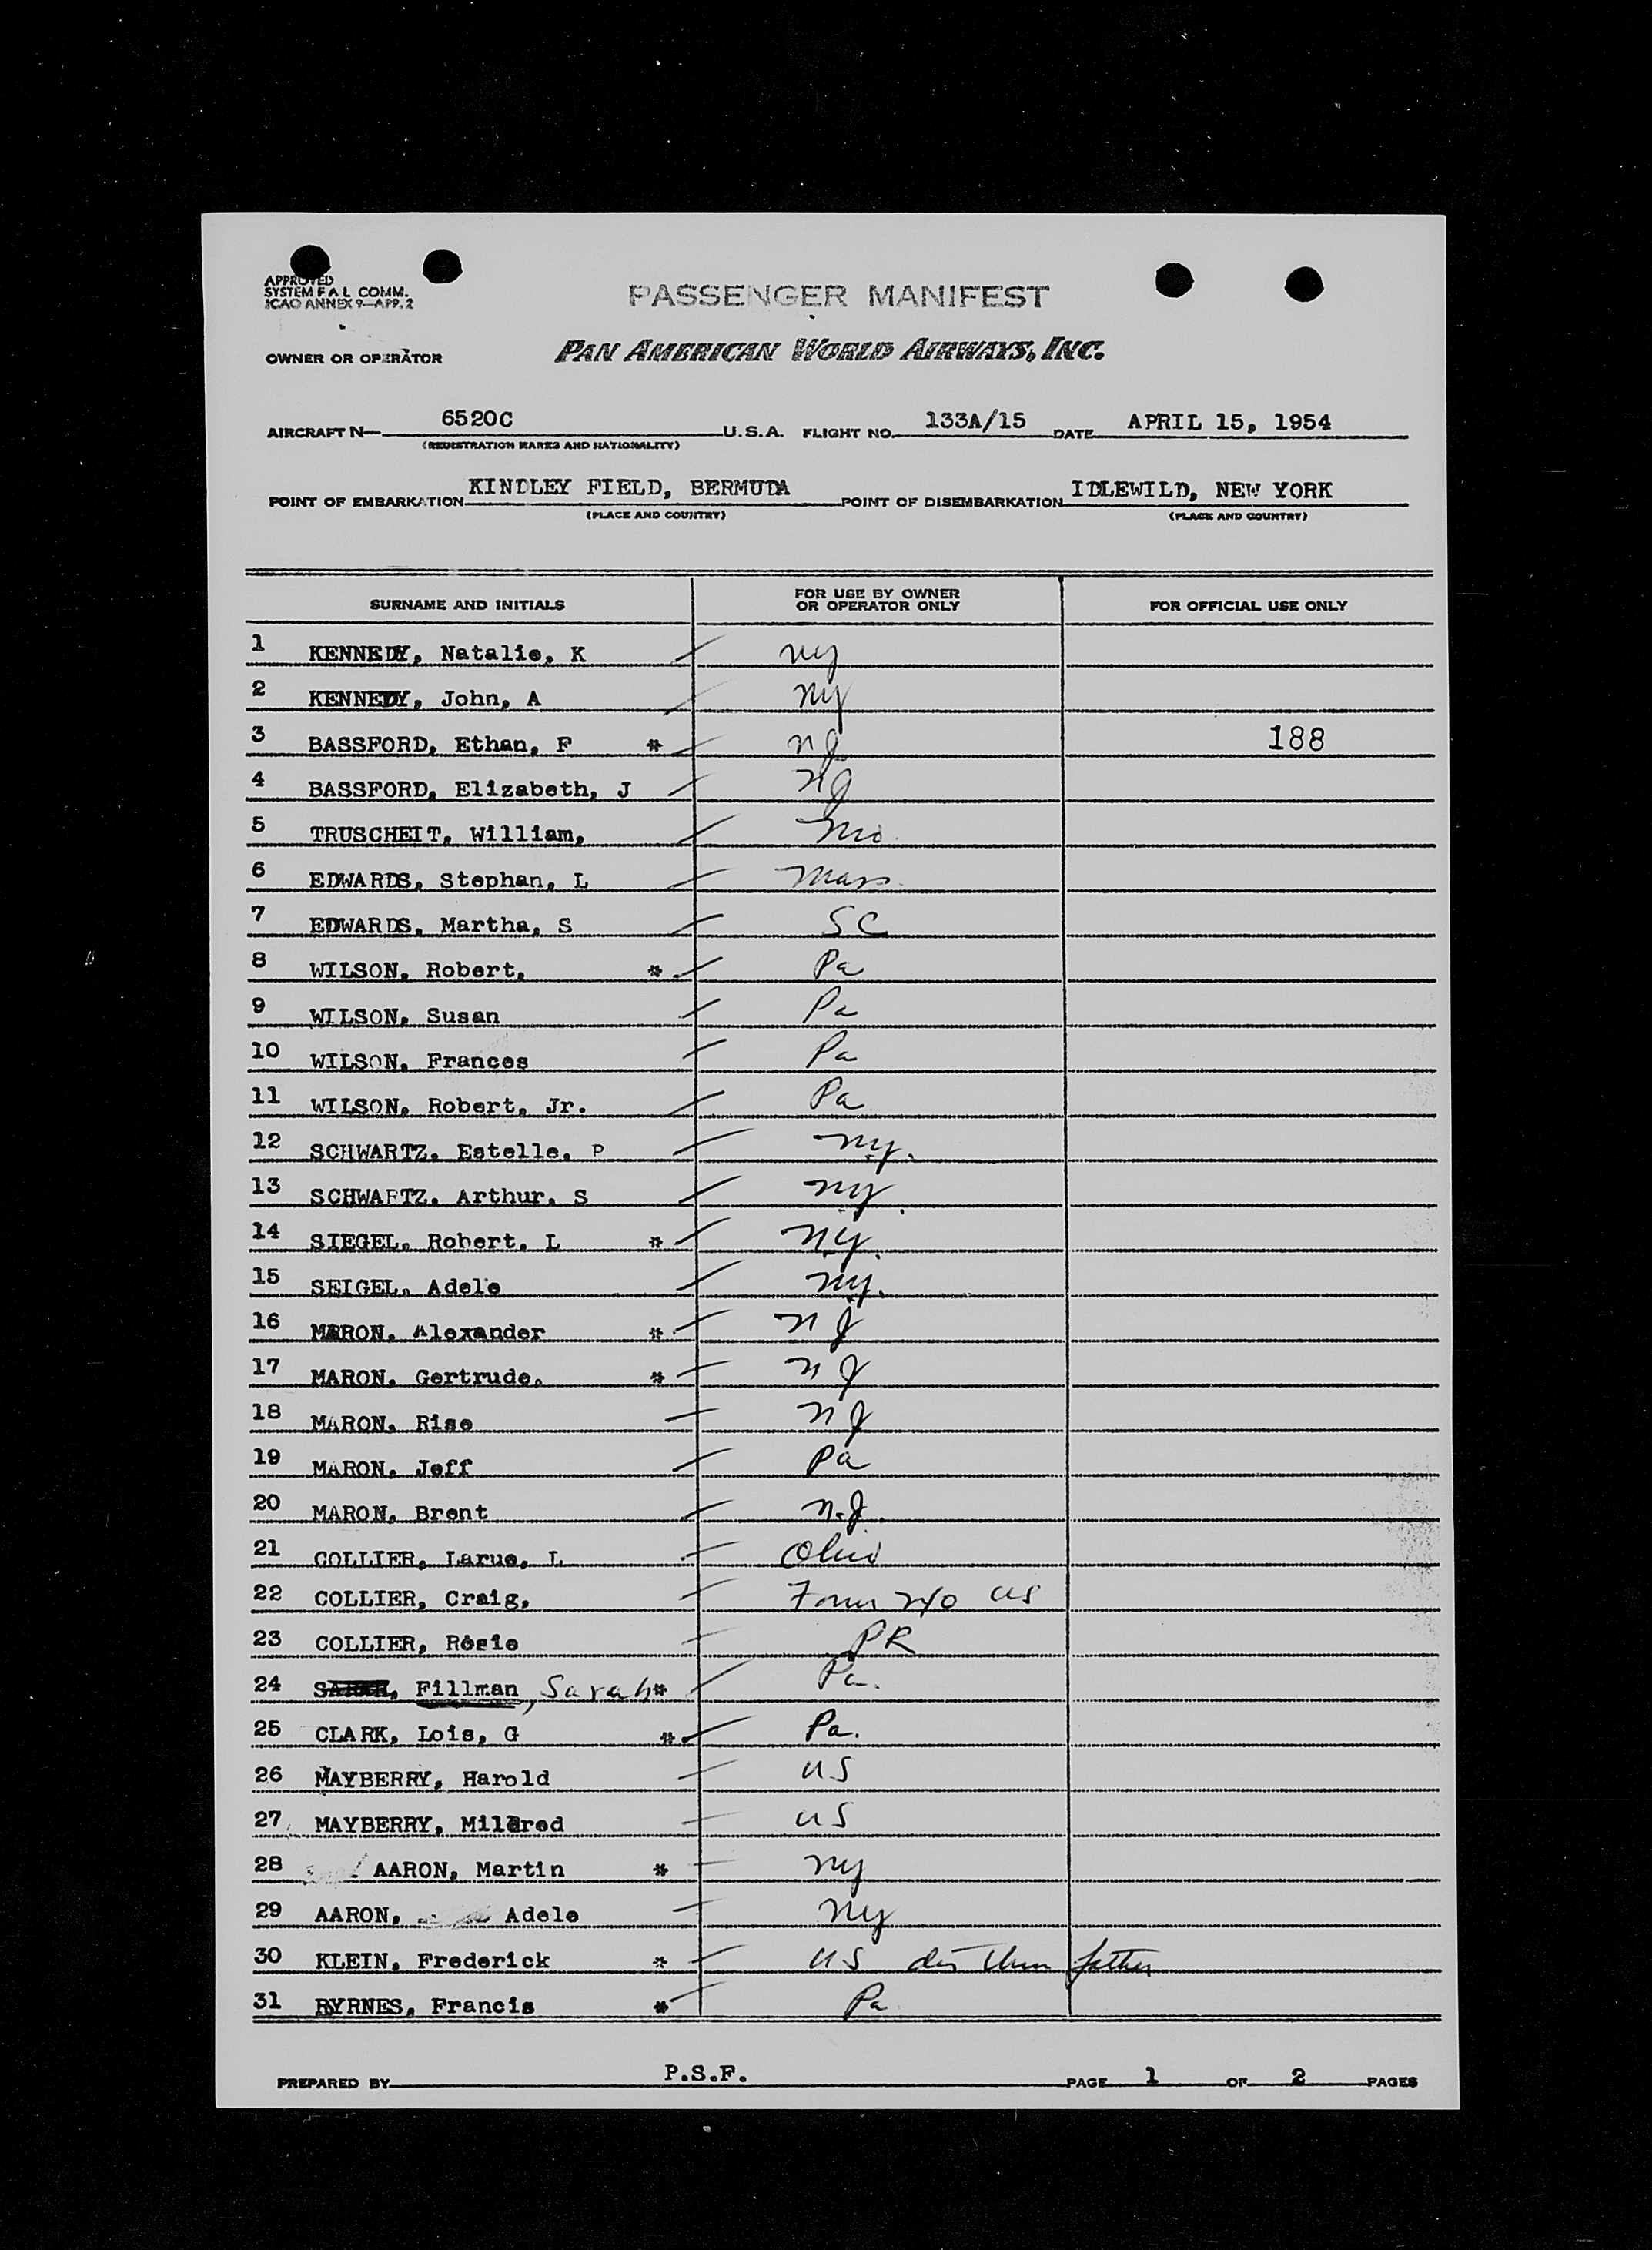 APPROVED
SYSTEM F A L COMM.
ICAO ANNEX 9—APP. 2
PASSENGER MANIFEST
OWNER OR OPERATOR PAN AMERICAN WORLD AIRWAYS, INC.
AIRCRAFT N— 6520C U.S.A. FLIGHT NO. 133A/15 DATE APRIL 15, 1954
(REGISTRATION MARKS AND NATIONALITY)
POINT OF EMBARKATION KINDLEY FIELD, BERMUDA POINT OF DISEMBARKATION IDLEWILD, NEW YORK
(PLACE AND COUNTRY) (PLACE AND COUNTRY)
SURNAME AND INITIALS FOR USE BY OWNER OR OPERATOR ONLY FOR OFFICIAL USE ONLY
1 KENNEDY, Natalie, K ny
2 KENNEDY, John, A ny
3 BASSFORD, Ethan, F * nj 188
4 BASSFORD, Elizabeth, J nj
5 TRUSCHEIT, William, mo
6 EDWARDS, Stephan, L mass.
7 EDWARDS, Martha, S SC
8 WILSON, Robert, * Pa
9 WILSON, Susan Pa
10 WILSON, Frances Pa
11 WILSON, Robert, Jr. Pa
12 SCHWARTZ, Estelle, P ny.
13 SCHWARTZ, Arthur, S ny
14 SIEGEL, Robert, L * ny.
15 SEIGEL, Adele ny.
16 MARON, Alexander * nj
17 MARON, Gertrude, * nj
18 MARON, Rise nj
19 MARON, Jeff Pa
20 MARON, Brent n.j.
21 COLLIER, Larue, L Ohio
22 COLLIER, Craig, US
23 COLLIER, Rosie PR
24 Fillman, Sarah * Pa.
25 CLARK, Lois, G * Pa.
26 MAYBERRY, Harold US
27 MAYBERRY, Mildred US
28 AARON, Martin * ny
29 AARON, Adele ny
30 KLEIN, Frederick * US father
31 BYRNES, Francis * Pa
PREPARED BY P.S.F. PAGE 1 OF 2 PAGES